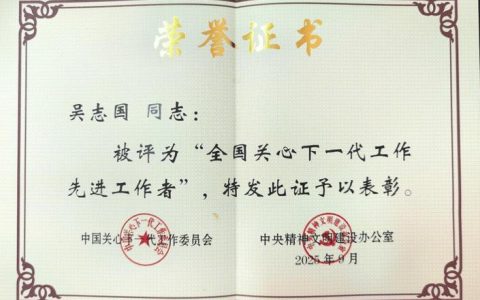 荣誉证书
吴志国 同志：
被评为“全国关心下一代工作
先进工作者”，特发此证予以表彰。
中国关心下一代工作委员会 中央精神文明建设办公室
2025年9月